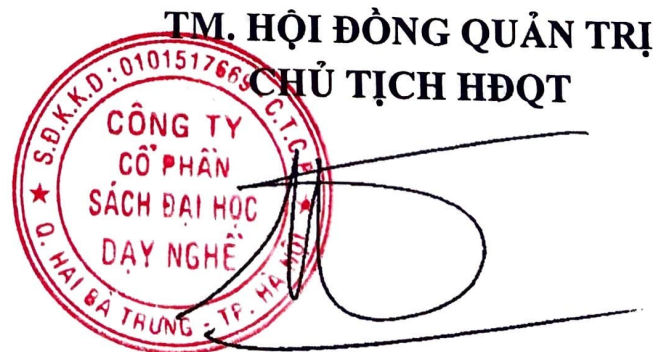 TM. HỘI ĐỒNG QUẢN TRỊ
CHỦ TỊCH HĐQT
S.Đ.K.K.D: 0101517669 C.T.C.P
CÔNG TY
CỔ PHẦN
SÁCH ĐẠI HỌC
DẠY NGHỀ
Q. HAI BÀ TRƯNG - TP. HÀ NỘI